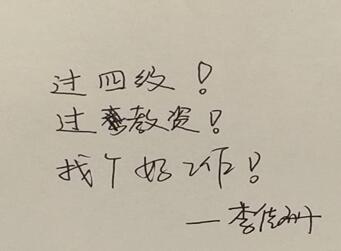 过四级！
过教资！
找个好工作！
—李佳珊